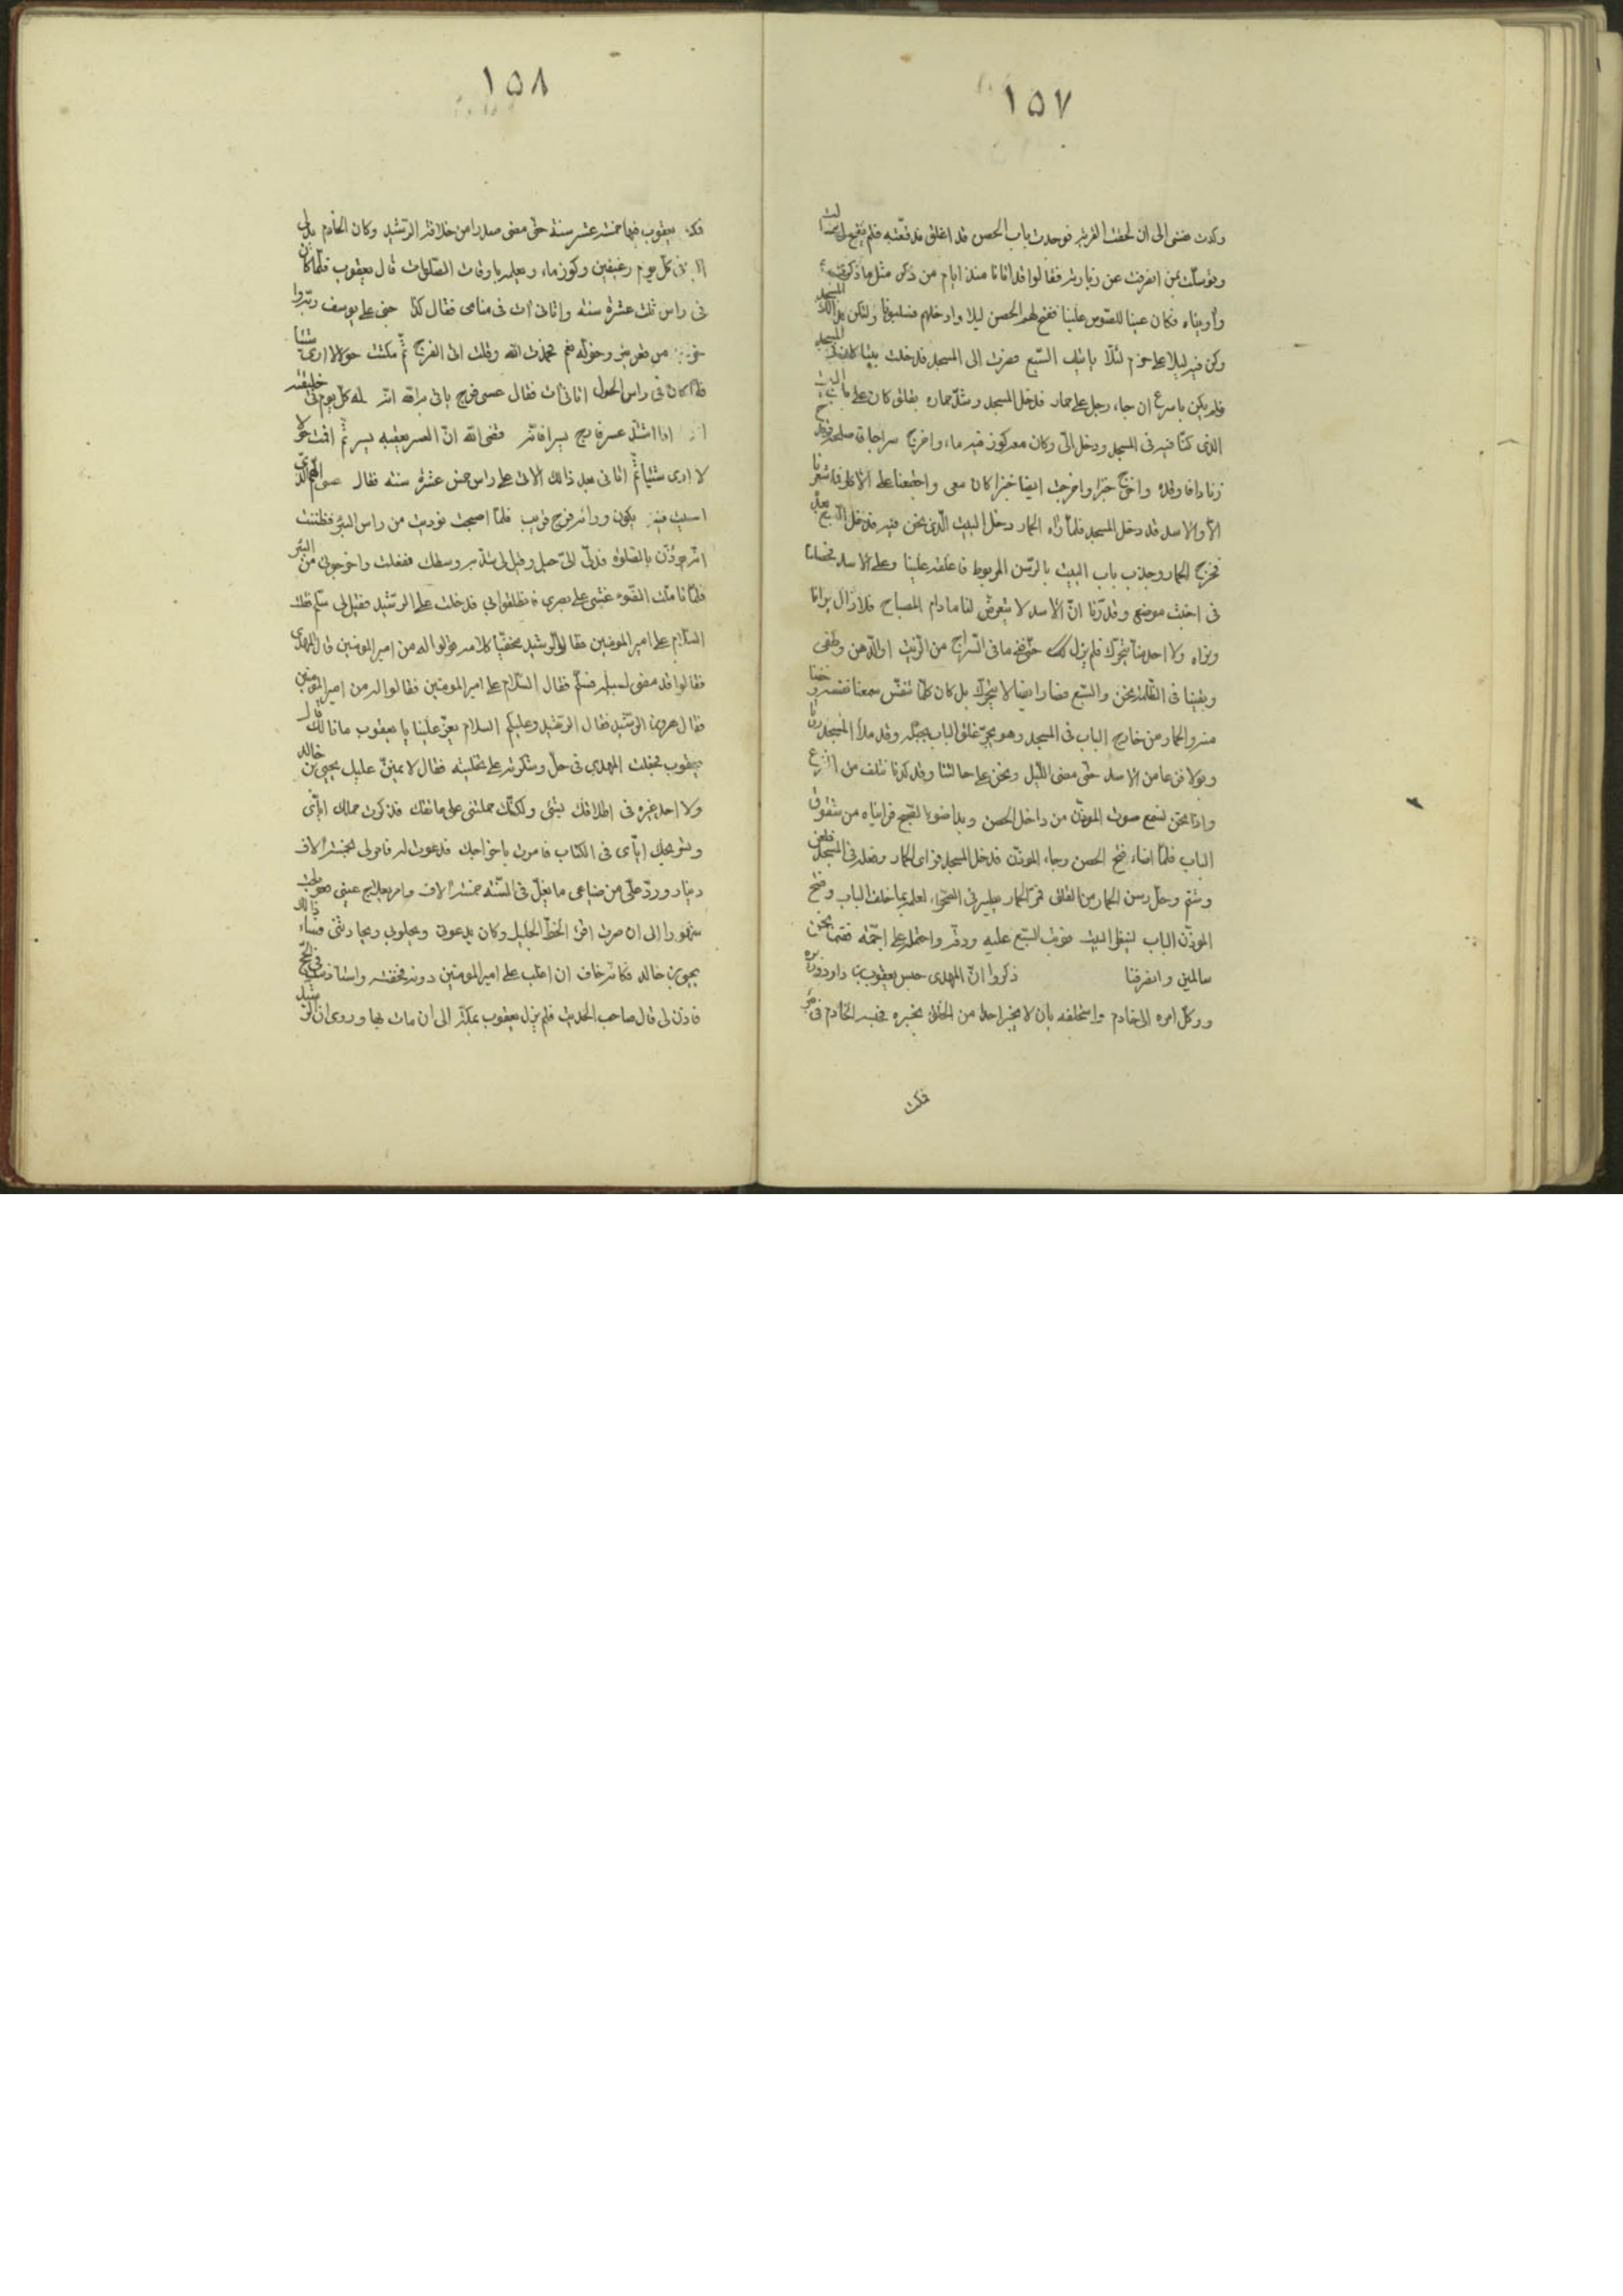 ١٥٧
وكدت نفسى الى ان لحقت القرية فوجدت باب الحصن قد اغلق فدفعته فلم يفتح لى
وتوسلت بمن انصرفت عن زيارته فقالوا قد اتانا منذ ايام من ذكر مثل ما ذكرته
وآويناه فكان عينا للصوص علينا ففتح لهم الحصن ليلا وادخلهم فسلبونا ولكن
وكن فيه ليلا على حزم لئلا ياتيك السبع فصرت الى المسجد فدخلت بيتا كان فى
فلم يكن باسرع ان جاء رجل على حمار فدخل المسجد وشدّ حماره بغلق كان على باب البيت
الذى كنّا فيه فى المسجد ودخل الىّ وكان معه كوز فيه ماء واخرج سراجا
زنادا فاوقده واخرج خبزا واخرجت ايضا خبزا كان معى واجتمعنا على الاكل فما شعرنا
الّا والاسد قد دخل المسجد فلمّا رآه الحمار دخل البيت الّذى نحن فيه فدخل السبع بعده
فخرج الحمار وجذب باب البيت بالرسن المربوط فاغلقه علينا وعلى الاسد فحصلنا
فى اخبث موضع وقدّرنا انّ الاسد لا يتعرض لنا ما دام المصباح فلا زال يرانا
ونراه ولا احد منّا يتحرّك فلم يزل كك حتّى فنى ما فى السراج من الزيت او الدهن وطفى
وبقينا فى الظلمة نحن والسبع فصار ايضا لا يتحرّك بل كان كلّما تنفّس سمعنا نفسه وخفنا
منه والحمار من خارج الباب فى المسجد وهو يجرّ غلق الباب بحبله وقد ملأ المسجد روثا
وبولا فزعا من الاسد حتّى مضى الليل ونحن على حالتنا وقد كدنا نتلف من الفزع
واذا نحن نسمع صوت الموذّن من داخل الحصن وبدا ضوء الصبح فرايناه من شقوق
الباب فلمّا اضاء فتح الحصن وجاء الموذّن فدخل المسجد فراى الحمار وفعله فى المسجد فلعن
وشتم وحلّ رسن الحمار من الغلق فمرّ الحمار يطير فى الصحراء لعلمه بما خلف الباب وفتح
الموذّن الباب لينظر البيت فوثب السبع عليه ودقّه واحتمله على اجمّته فقمنا نحن
سالمين وانصرفنا ذكروا انّ المهدى حبس يعقوب بن داود وزيره
ووكّل امره الى خادم واستحلفه بان لا يخبر احدا من الخلق بخبره فحبسه الخادم فى بئر
فمكث
١٥٨
فكث يعقوب فيها خمسة عشر سنة حتى مضى صدرا من خلافة الرشيد وكان الخادم يدلى
اليه فى كل يوم رغيفين وكوز ماء ويعلمه باوقات الصلوات قال يعقوب فلمّا كان
فى راس ثلث عشرة سنة واتانى آت فى منامى فقال لى حنى على يوسف
من قعر بئر وحوله غم فحمدت الله وقلت اتى الفرج ثم مكثت حولا لا ارى شيئا
فلمّا كان فى راس الحول اتانى آت فقال عسى فرج ياتى به الله انّه له كل يوم فى خليقته
اذا اشتدّ عسر فارج يسرا فانّه قضى الله انّ العسر يعقبه يسر ثم اقمت حولا
لا ارى شيئا ثم اتانى بعد ذلك الآت على راس خمس عشرة سنة فقال عسى الهمّ الّذى
امسيت فيه يكون ورائه فرج قريب فلمّا اصبحت نوديت من راس البئر فظننت
انّه يؤذّن بالصلوة فدلّى الىّ حبل وقيل لى شدّ به وسطك ففعلت واخرجونى من البئر
فلمّا تاملت الضوء غشى على بصرى فانطلقوا بى فدخلت على الرشيد فقيل لى سلّم فقلت
السلام على امير المومنين فقال الرشيد مخفيا كلامه قولوا له من امير المومنين قال المهدى
فقالوا قد مضى لسبيله فسلّم فقال السلام على امير المومنين فقالوا له من امير المومنين
فقال هرون الرشيد فقال الرشيد وعليكم السلام يعزّ علينا يا يعقوب ما نالك قال
يعقوب فجعلت المهدى فى حلّ وشكرته على تخليته فقال لا يمننّ عليك يحيى بن خالد
ولا احد غيره فى اطلاقك بشئ ولكنّك حملتنى على عاتقك فذكرت حملك ايّاى
وتعريجك ايّاى فى الكتاب فامرت باخراجك فدعوت له فامر لى بخمسة الاف
دينار وردّ علىّ من ضياعى ما يغلّ فى السنة خمسة آلاف وامر بعلاج عينى فعولجت
شهورا الى ان صرت اقرء الخطّ الجليل وكان يدعونى ويخلو بى ويحادثنى فساء ذالك
يحيى بن خالد فكانّه خاف ان اغلب على امير المومنين دونه فخفته واستاذنته فى الحجّ
فاذن لى قال صاحب الحديث فلم يزل يعقوب بمكّة الى ان مات بها وروى ان الرشيد